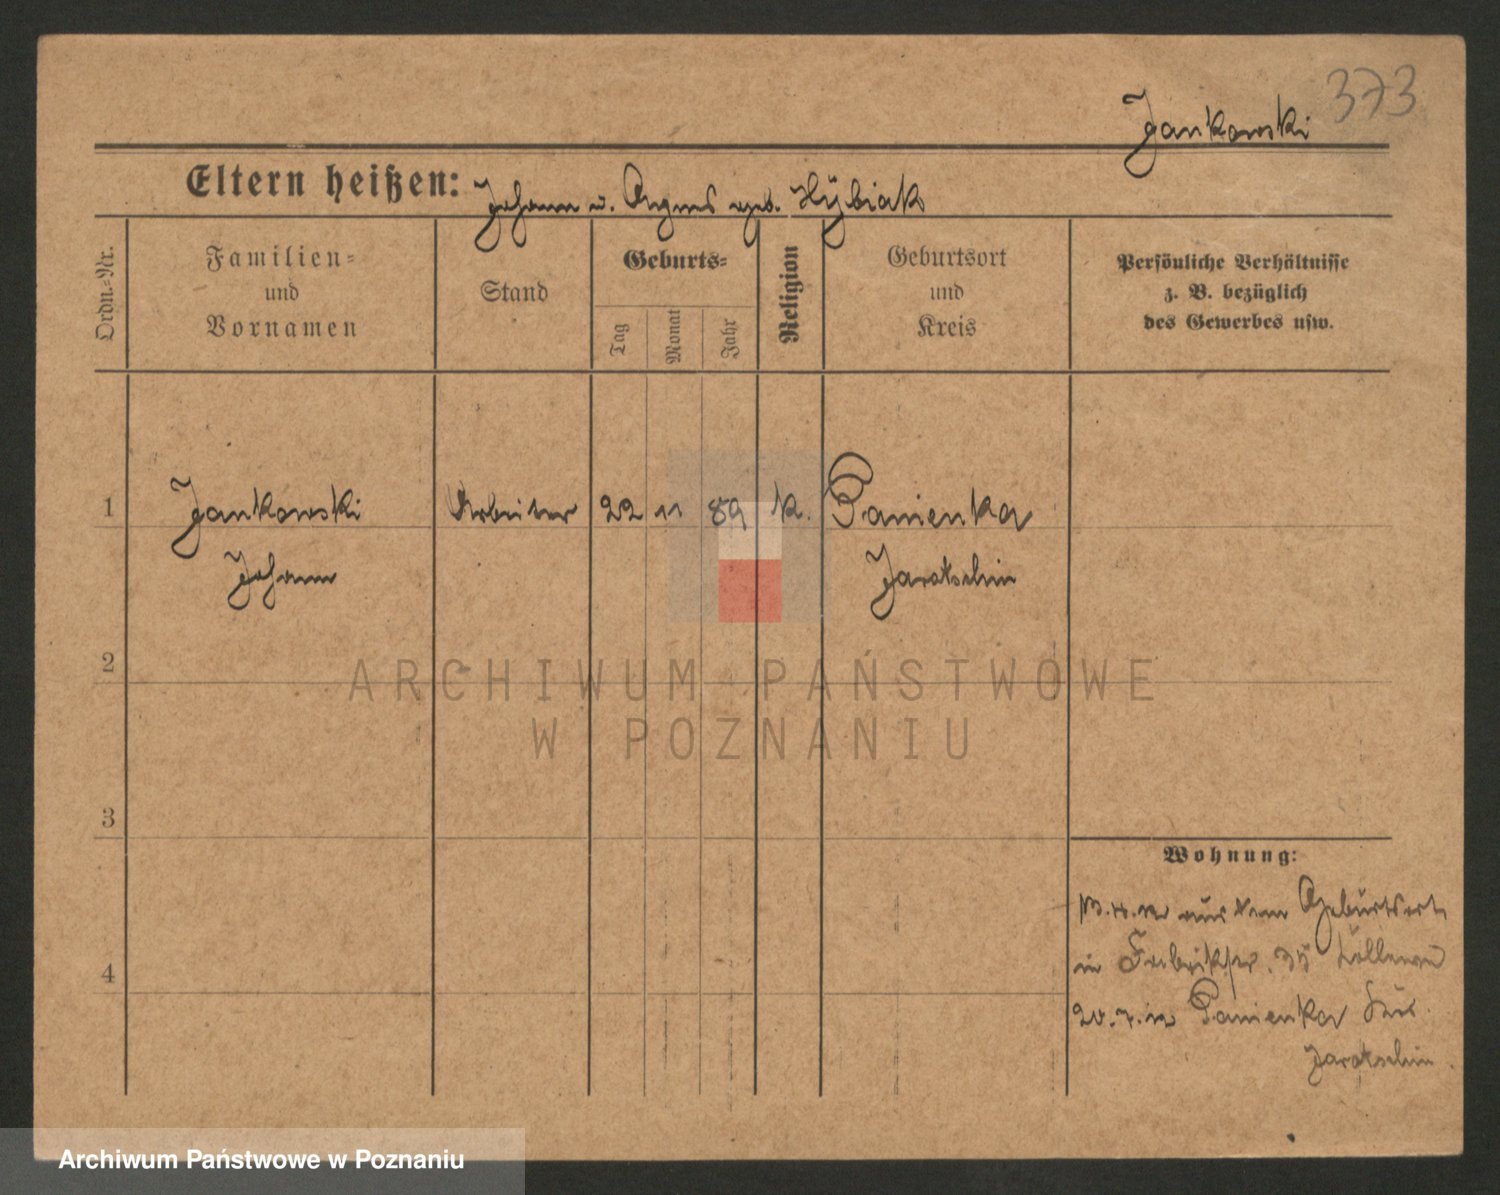 373
Jankowski
Eltern heißen: Johann u. Agnes geb. Hÿbiak
Ordn.-Nr.
Familien-
und
Vornamen
Stand
Geburts-
Tag
Monat
Jahr
Religion
Geburtsort
und
Kreis
Persönliche Verhältnisse
z. B. bezüglich
des Gewerbes usw.
1 Jankowski Arbeiter 22 11 89 k. Panienka
Johann Jaratschin
2
3
4
Wohnung:
aus dem Geburtsort
in Fabrikstr. 35
20.7.12 Panienka Krs.
Jaratschin.
ARCHIWUM PAŃSTWOWE
W POZNANIU
Archiwum Państwowe w Poznaniu